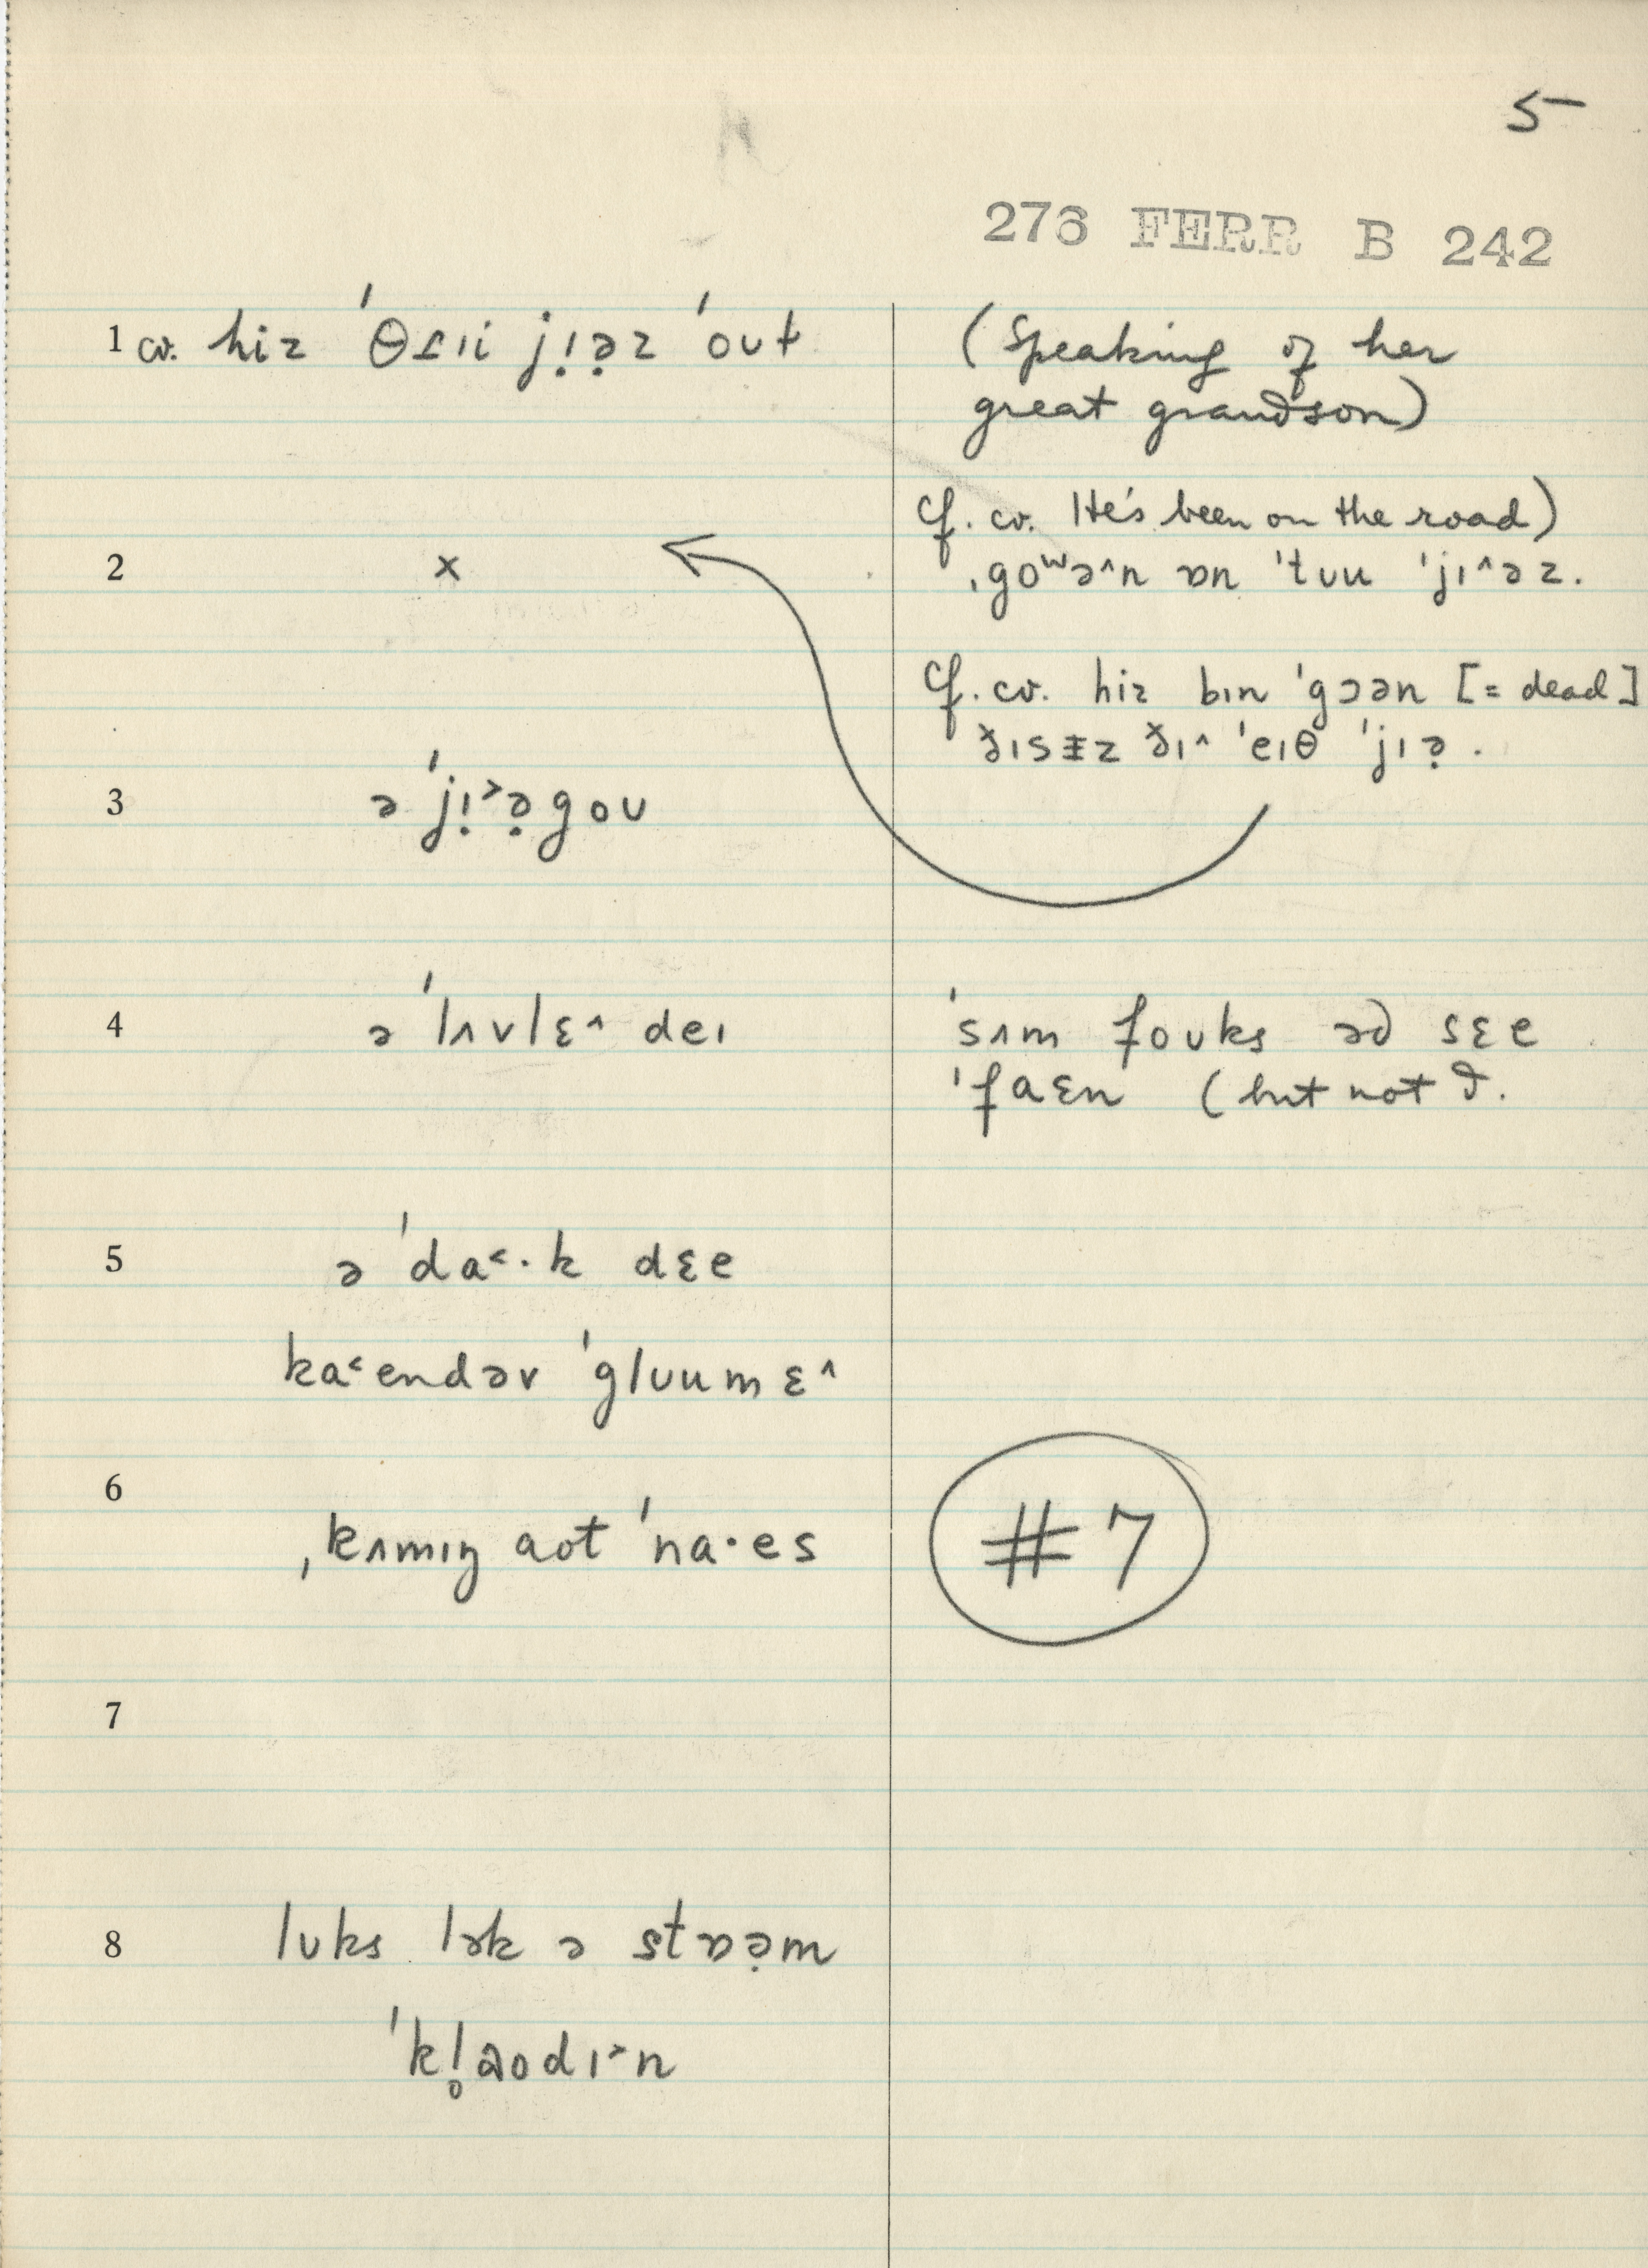 5
276 FERR B 242
1 cv. hiz ˈθɾɪi jɪ̣ə̣z ˈoʊt
(Speaking of her
great grandson)
cf. cv. He's been on the road)
2 x
ˌgoʷə^n ɒn ˈtʊu ˈjɪ^əz.
cf. cv. hiz bɪn ˈgɔən [= dead]
ð̆ɪsɨz ð̆ɪ^ ˈeɪθ ˈjɪə̣.
3 ə ˈjɪ̣˃ə̣goʊ
4 ə ˈlʌvlɛ^ deɪ
ˈsʌm foʊks əd sɛe
ˈfaɛn (but not I.
5 ə ˈda˂·k dɛe
ka˂endəv ˈglʊumɛ^
6
ˌkʌmɪŋ aot ˈna·es
#7
7
8 lʊks lək ə stɒə̣m
ˈkl̥aodɪ˃n